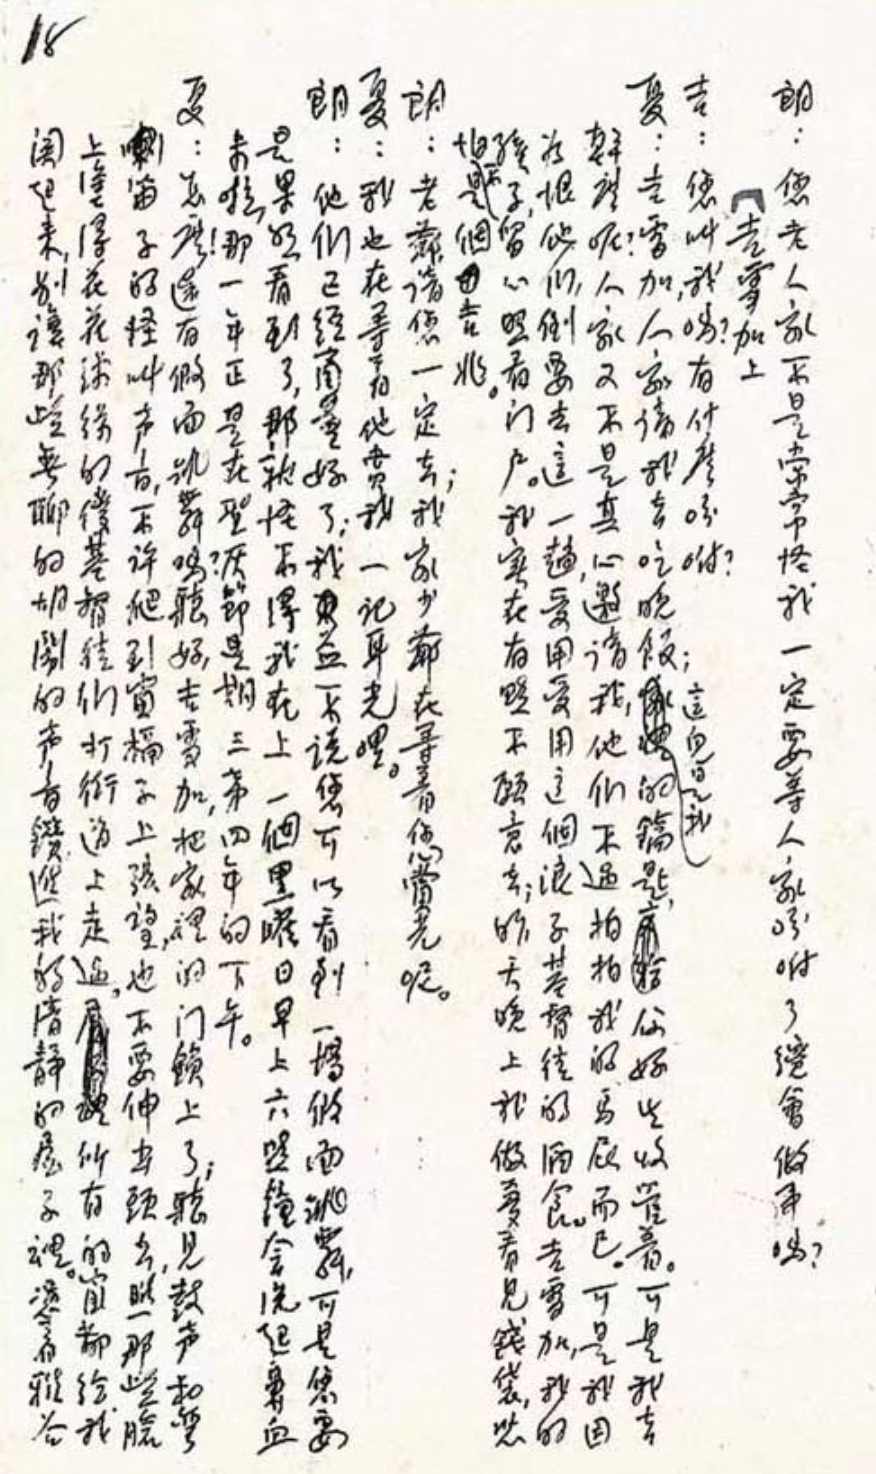 18
朗：您老人家不是常常怪我一定要等人家吩咐了纔會做事嗎？
吉雪加上
吉：您叫我嗎？有什麼吩咐？
這兒是我
夏：吉雪加，人家請我去吃晚飯；的鑰匙，你好生收管着。可是我去
幹麼呢？人家又不是真心邀請我，他們不過拍拍我的馬屁而已。可是我因
為恨他們，倒要去這一趟，受用受用這個浪子基督徒的酒食。吉雪加，我的
孩子，留心照看门户。我實在有點不願意去；昨天晚上我做夢看見錢袋，恐
怕不是個吉兆。
朗：老爺，請您一定去；我家少爺在等着您賞光呢。
夏：我也在等着他賞我一記耳光哩。
朗：他們已經商量好了；我並不說您可以看到一場假面跳舞，可是您要
是果然看到了，那就怪不得我在上一個黑曜日早上六點鐘會流起鼻血
来啦，那一年正是在聖灰節星期三第四年的下午。
夏：怎麼！還有假面跳舞嗎？聽好，吉雪加，把家裡的门鎖上了；聽見鼓声和彎
笛子的怪叫声音，不许爬到窗槅子上張望，也不要伸出頭去，瞧那些臉
上塗得花花綠綠的傻基督徒們打街道上走過。所有的窗都给我
関起来，别讓那些無聊的胡鬧的声音鑽進我的清静的屋子裡。憑着雅各